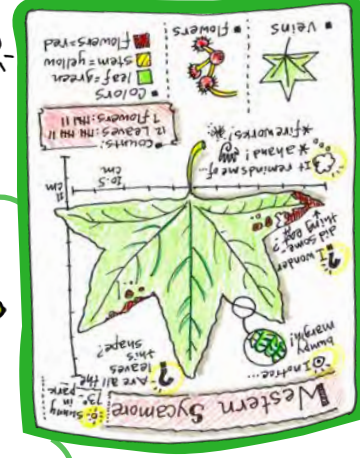 Western Sycamore
Sunny
73°
in
park
I notice...
bumpy
margin!
Are all the
leaves
this
shape?
I wonder
did some-
thing eat?
It reminds me of...
* a hand!
* fireworks!
10.5
cm
11
cm
Counts:
12 Leaves:
7 Flowers:
Colors
leaf=green
stem=yellow
flowers=red
Flowers
Veins